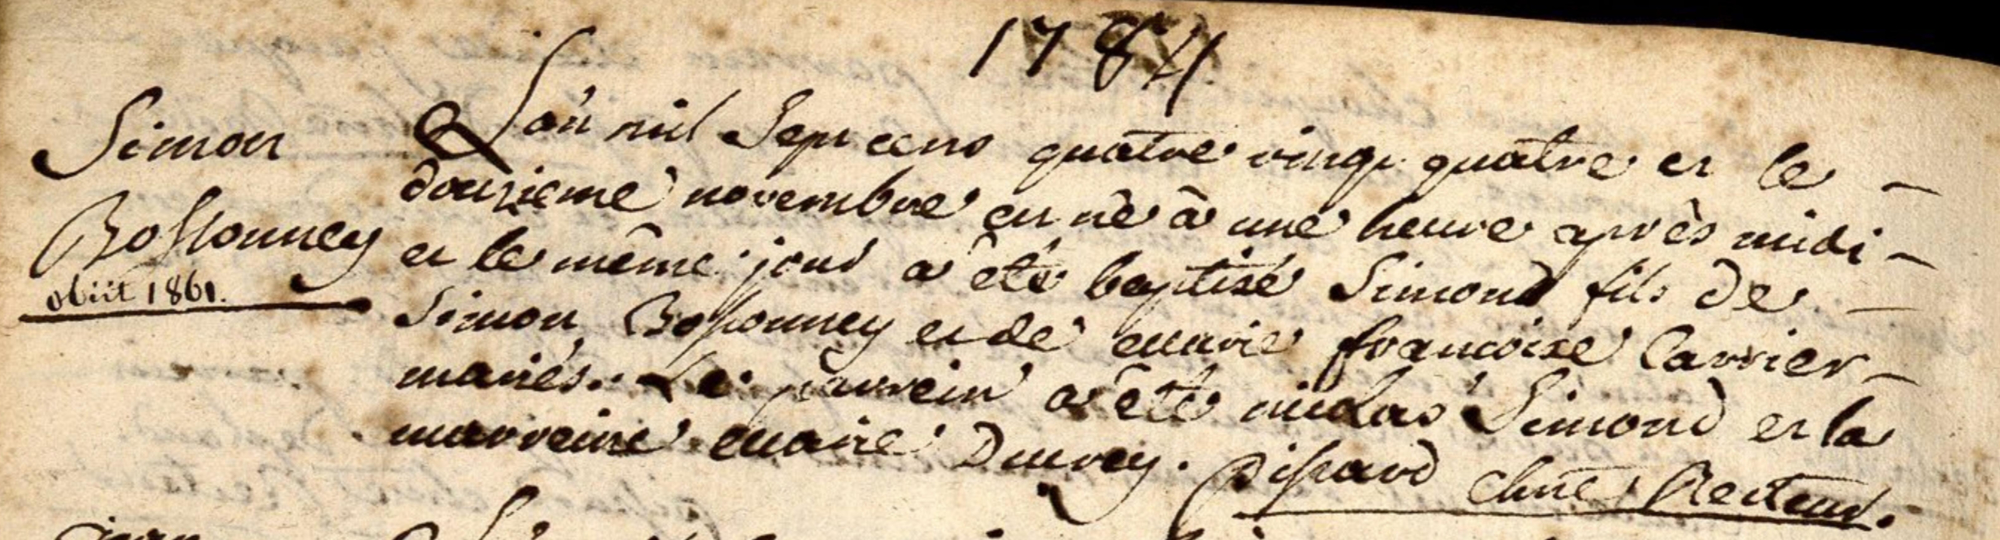 1784
Simon
Bossonney
obiit 1861.
L'an mil Sept cens quatre vingt quatre et le
douzieme novembre est né à une heure après midi
et le même jour a été baptisé Simond fils de
Simon Bossonney et de marie françoise Carrier
mariés. Le parrein a été nicolas Simond et la
marreine marie Ducrey. Dissard chne Recteur.